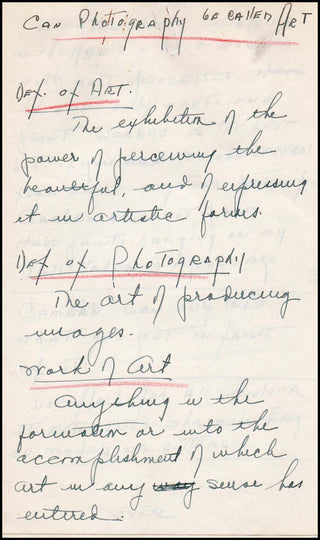 Can Photography be called Art
Def. of Art.
The exhibition of the
power of perceiving the
beautiful, and of expressing
it in artistic forms.
Def of Photography
The art of producing
images.
Work of Art
Anything in the
formation or into the
accomplishment of which
art in any way sense has
entered.